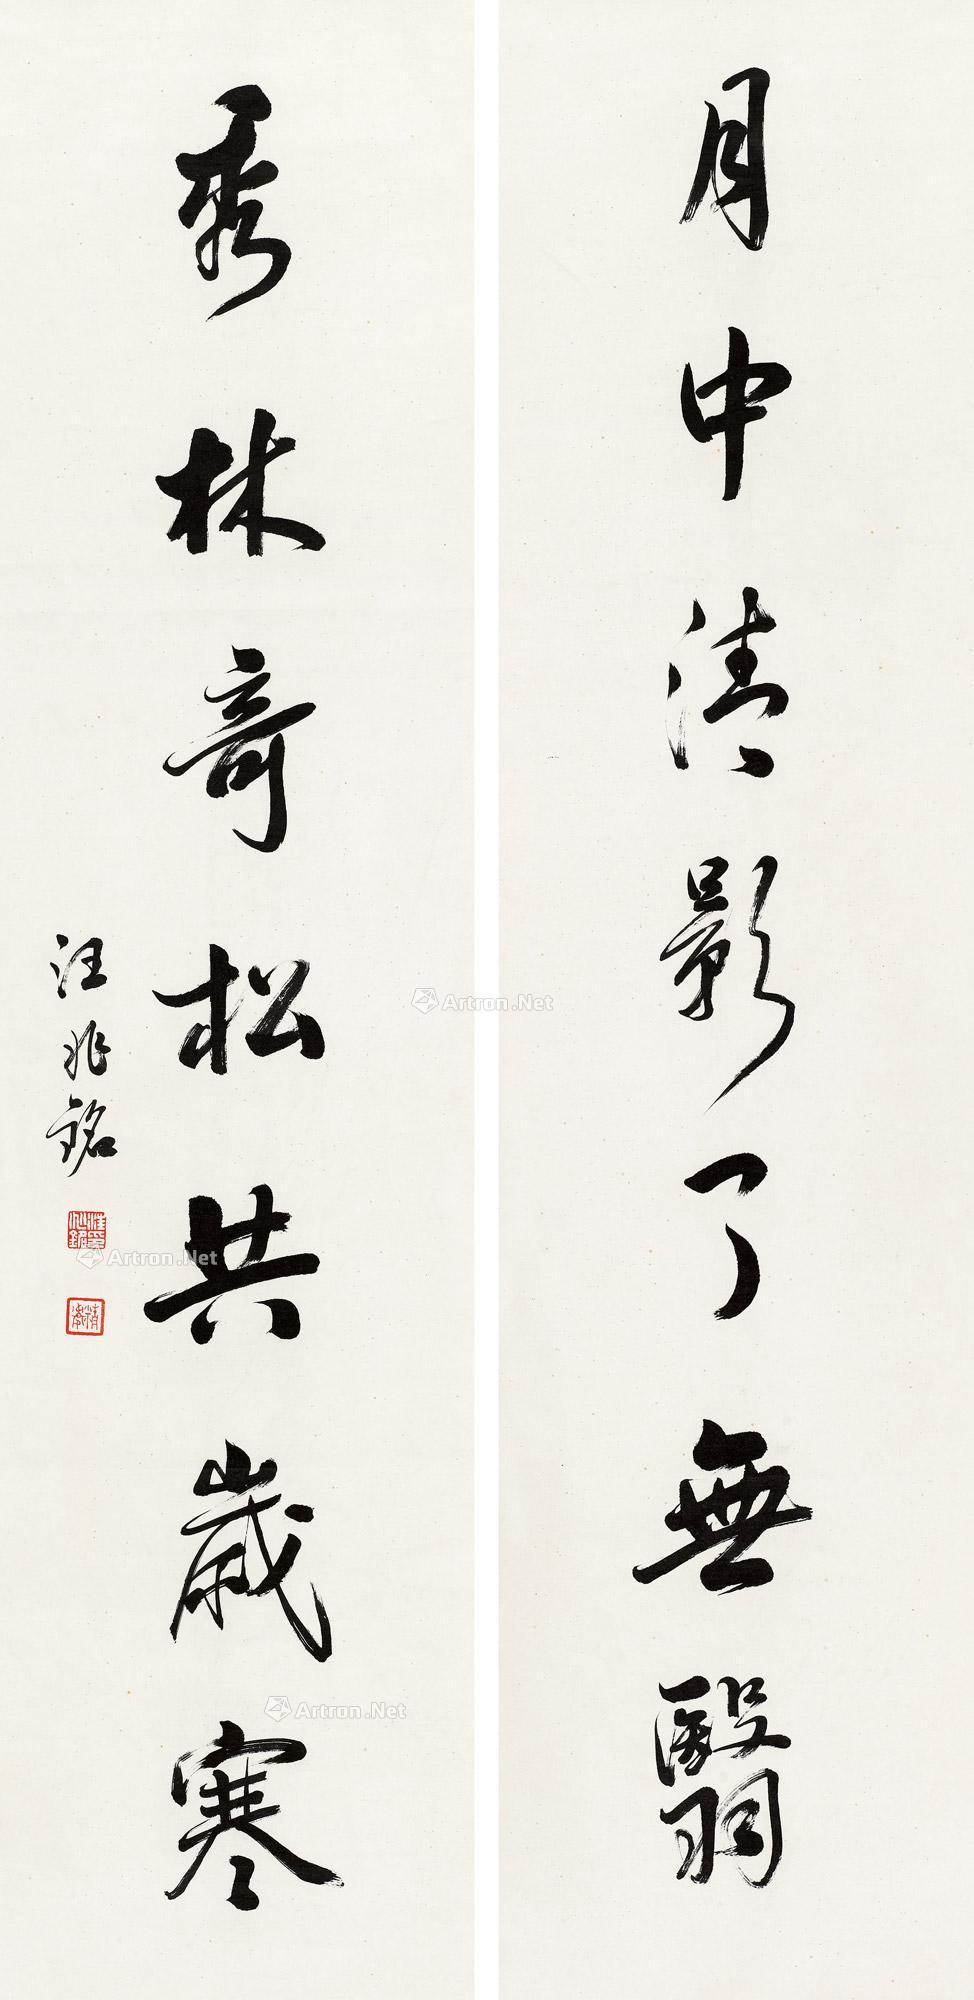 月中清影了無翳
秀林奇松共歲寒
汪兆銘
汪兆銘
精衛
Artron.Net
Artron.Net
Artron.Net